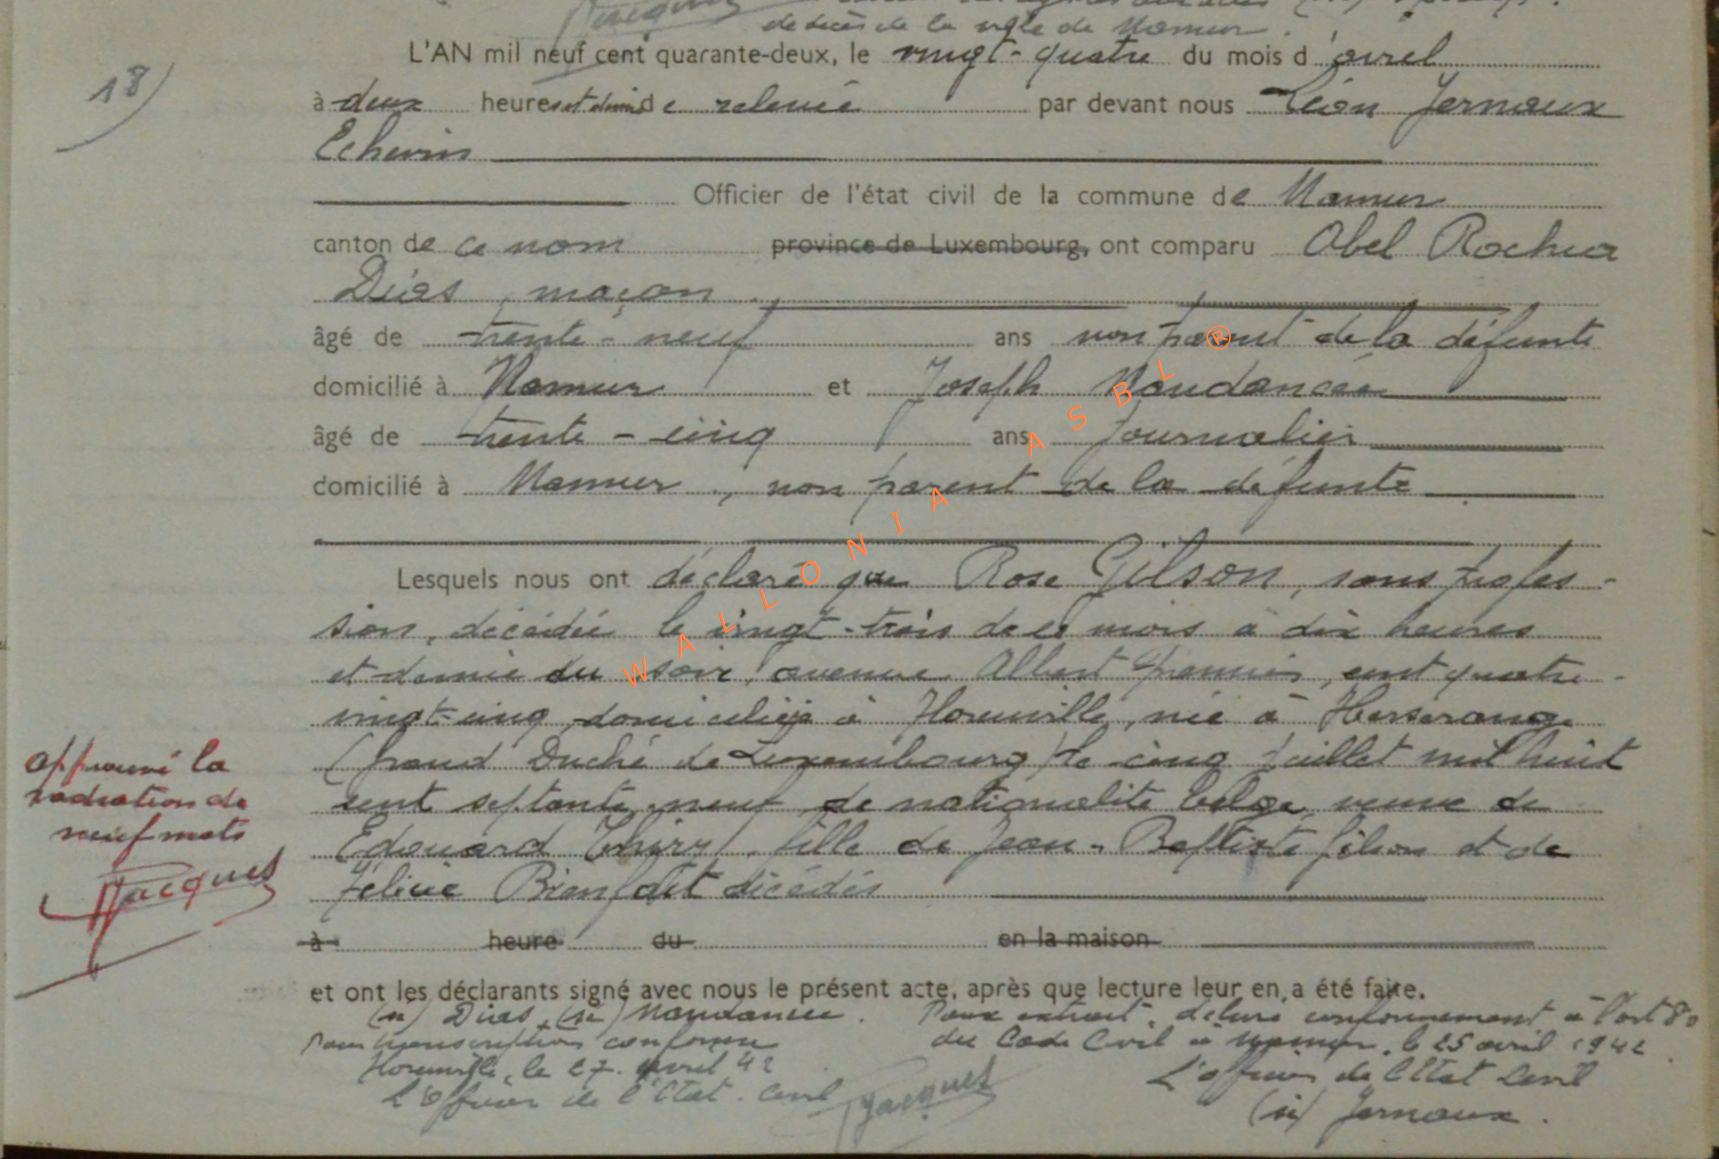 de décès de la ville de Namur.
18)
L'AN mil neuf cent quarante-deux, le vingt-quatre du mois d'avril
à deux heures et demie de relevée par devant nous Léon Jernaux
Echevin
Officier de l'état civil de la commune de Namur
canton de ce nom province de Luxembourg, ont comparu Abel Rocha
Dias, maçon
âgé de trente-neuf ans non parent de la défunte
domicilié à Namur et Joseph Naudancée
âgé de trente-cinq ans journalier
domicilié à Namur, non parent de la défunte
Lesquels nous ont déclaré que Rose Gilson, sans profes-
sion, décédée le vingt-trois de ce mois à dix heures
et demie du soir, avenue Albert premier, cent quatre-
vingt-cinq, domiciliée à Horenville, née à Herserange
(Grand Duché de Luxembourg) le cinq juillet mil huit
cent septante-neuf, de nationalité belge, veuve de
Edouard Thiry, fille de Jean-Baptiste Gilson et de
Félicie Bienfait décédés
à heure du en la maison
et ont les déclarants signé avec nous le présent acte, après que lecture leur en a été faite.
(sé) Dias, (sé) Naudancée. Pour extrait, délivré conformément à l'art 80
Pour transcription conforme du Code Civil à Namur, le 25 avril 1942.
Horenville, le 27 avril 42 L'officier de l'Etat Civil
L'Officier de l'Etat Civil Jacques (sé) Jernaux.
approuvé la
radiation de
neuf mots
Jacques
WALLONIA ASBL ®